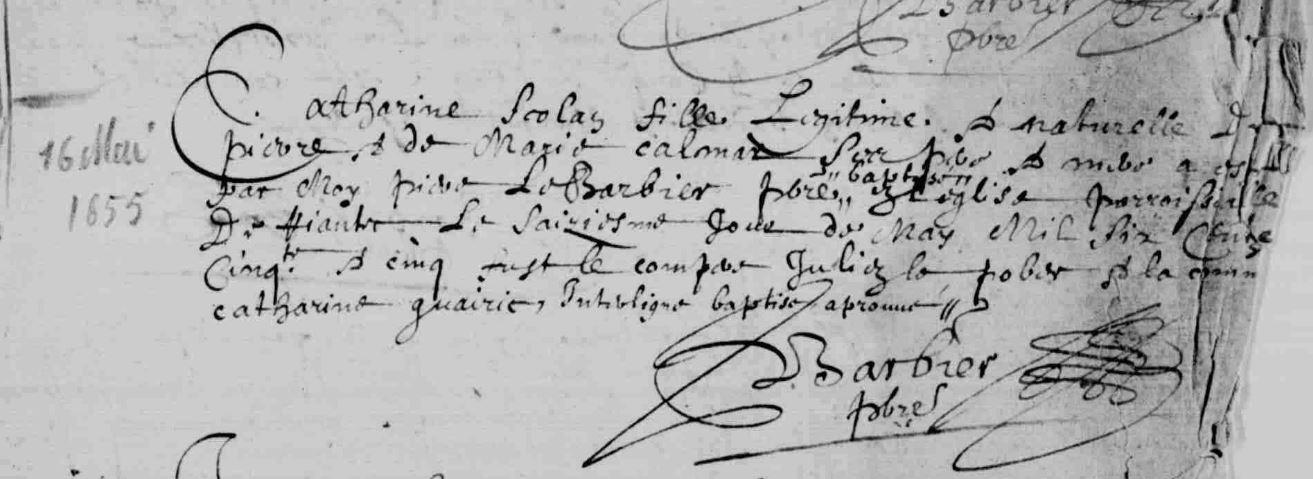 Barbier
pbre
16 Mai
1655
Catharine Scolan fille Legitime et naturelle De
pierre et de Marie calonar Ses pere et mere a esté
par Moy pierre Le Barbier pbre "baptisee" En l'eglise parroissialle
De Le Saiziesme Jour de May Mil Six Cents
Cinqte et cinq fust le compere Julien le pober et la comm
catharine quairic, Interligne baptisee aprouve
Barbier
pbre